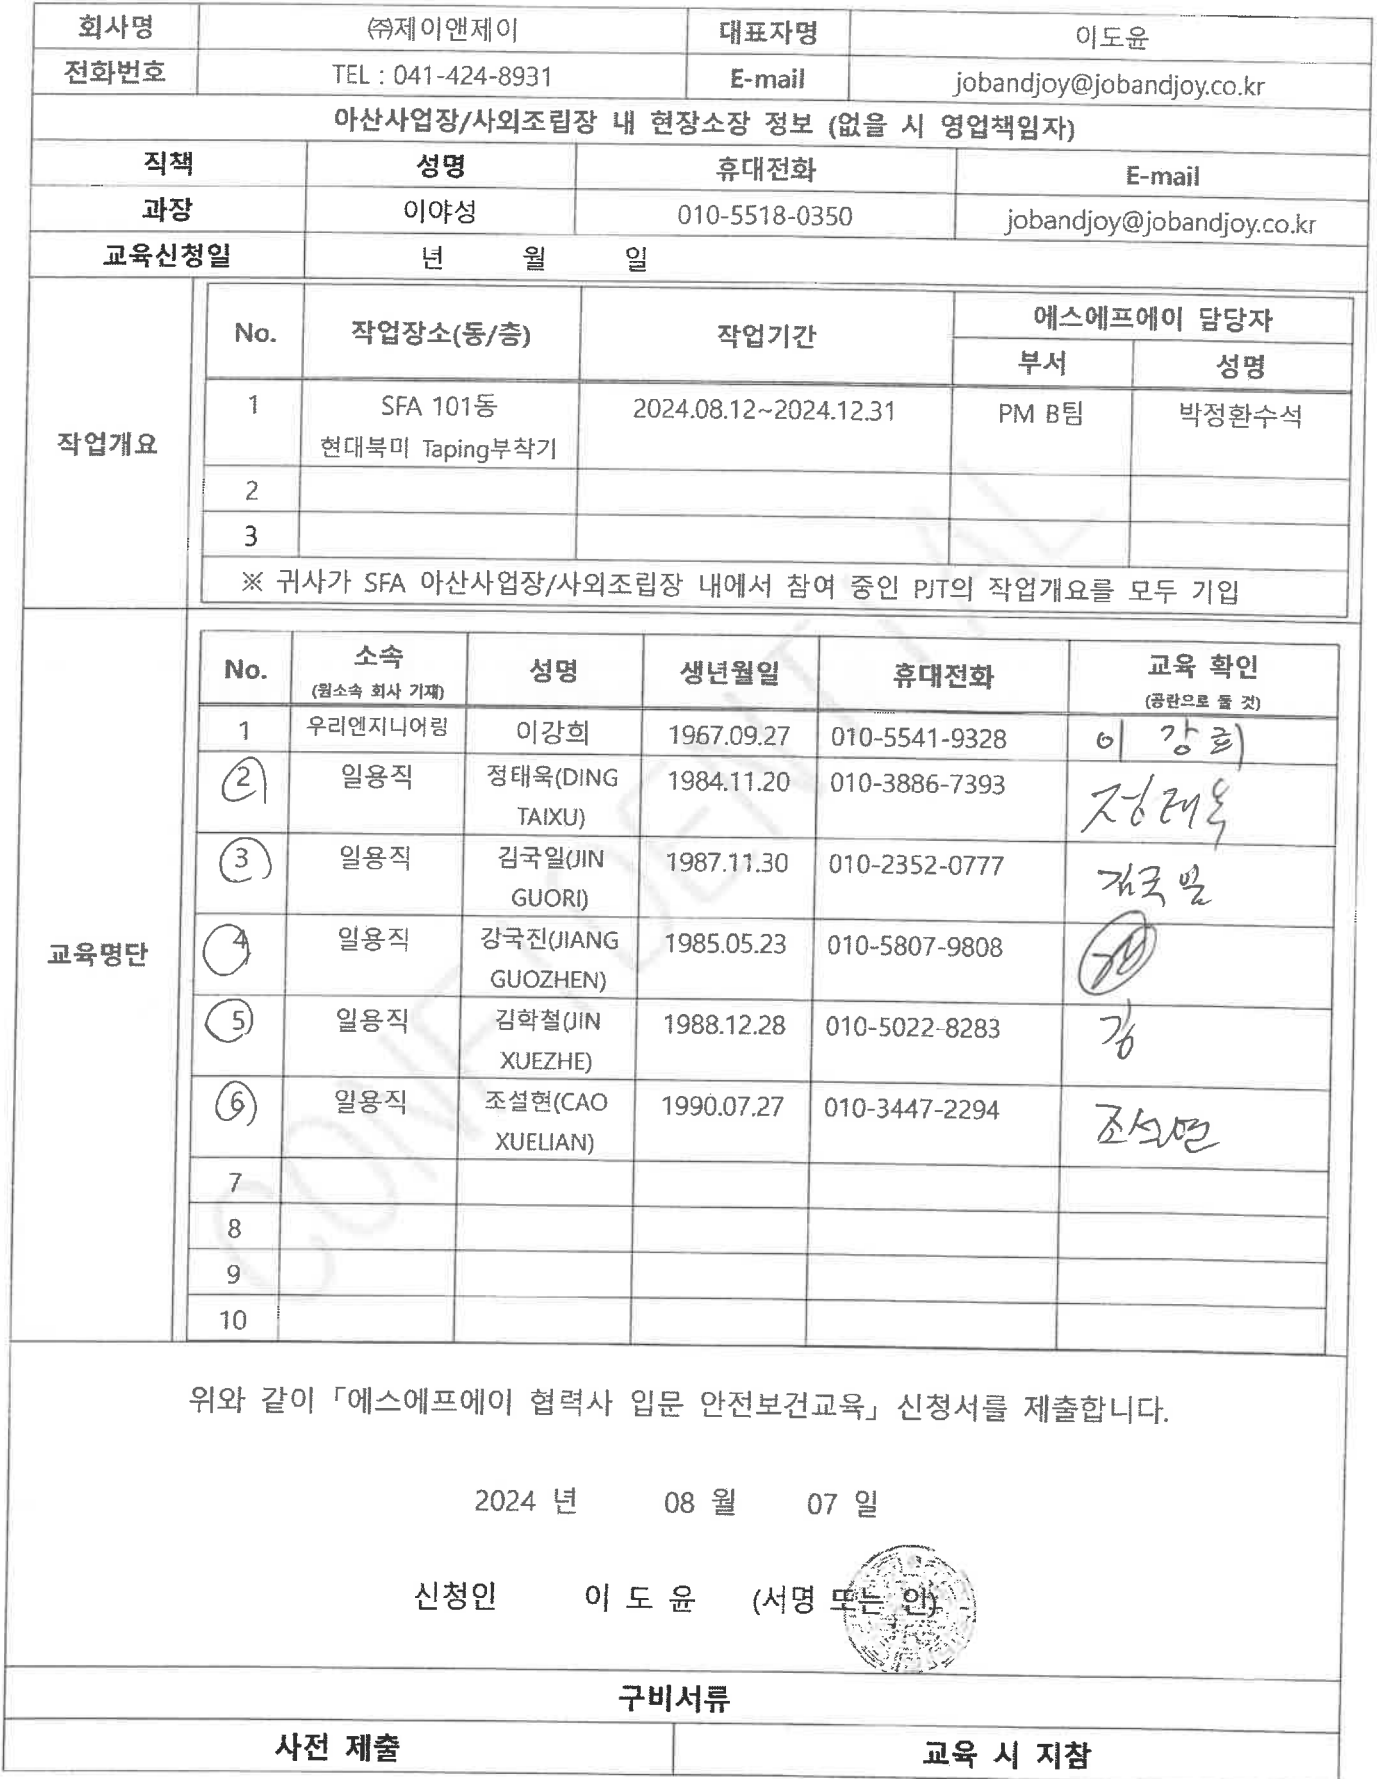 회사명 ㈜제이앤제이 대표자명 이도윤
전화번호 TEL : 041-424-8931 E-mail jobandjoy@jobandjoy.co.kr
아산사업장/사외조립장 내 현장소장 정보 (없을 시 영업책임자)
직책 성명 휴대전화 E-mail
과장 이야성 010-5518-0350 jobandjoy@jobandjoy.co.kr
교육신청일 년 월 일
작업개요
No. 작업장소(동/층) 작업기간 에스에프에이 담당자
부서 성명
1 SFA 101동 2024.08.12~2024.12.31 PM B팀 박정환수석
현대북미 Taping부착기
2
3
※ 귀사가 SFA 아산사업장/사외조립장 내에서 참여 중인 PJT의 작업개요를 모두 기입
교육명단
No. 소속 성명 생년월일 휴대전화 교육 확인
(원소속 회사 기재) (공란으로 둘 것)
1 우리엔지니어링 이강희 1967.09.27 010-5541-9328 이 강희
2 일용직 정태욱(DING 1984.11.20 010-3886-7393 정태욱
TAIXU)
3 일용직 김국일(JIN 1987.11.30 010-2352-0777 김국일
GUORI)
4 일용직 강국진(JIANG 1985.05.23 010-5807-9808
GUOZHEN)
5 일용직 김학철(JIN 1988.12.28 010-5022-8283 김
XUEZHE)
6 일용직 조설현(CAO 1990.07.27 010-3447-2294
XUELIAN)
7
8
9
10
CONFIDENTIAL
위와 같이 「에스에프에이 협력사 입문 안전보건교육」 신청서를 제출합니다.
2024 년 08 월 07 일
신청인 이 도 윤 (서명 또는 인)
구비서류
사전 제출 교육 시 지참